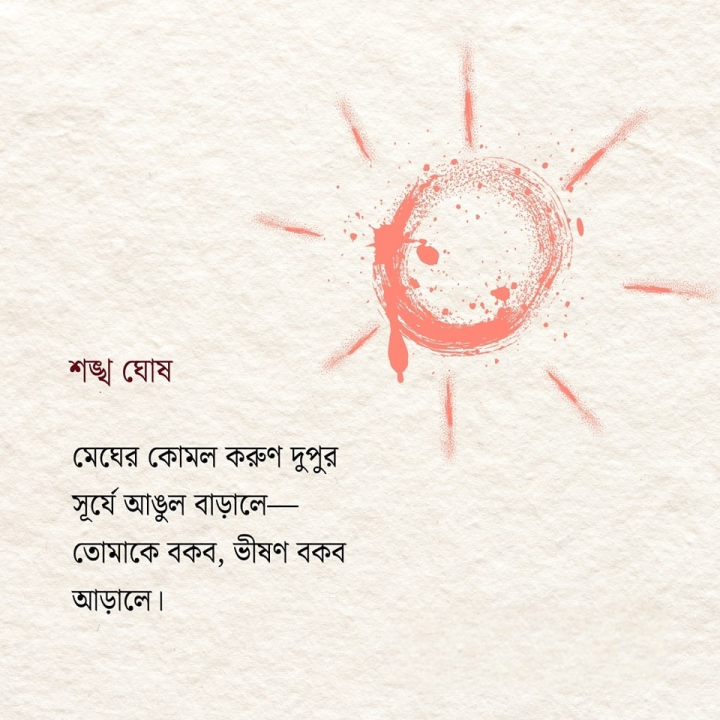 শঙ্খ ঘোষ
মেঘের কোমল করুণ দুপুর
সূর্যে আঙুল বাড়ালে—
তোমাকে বকব, ভীষণ বকব
আড়ালে।